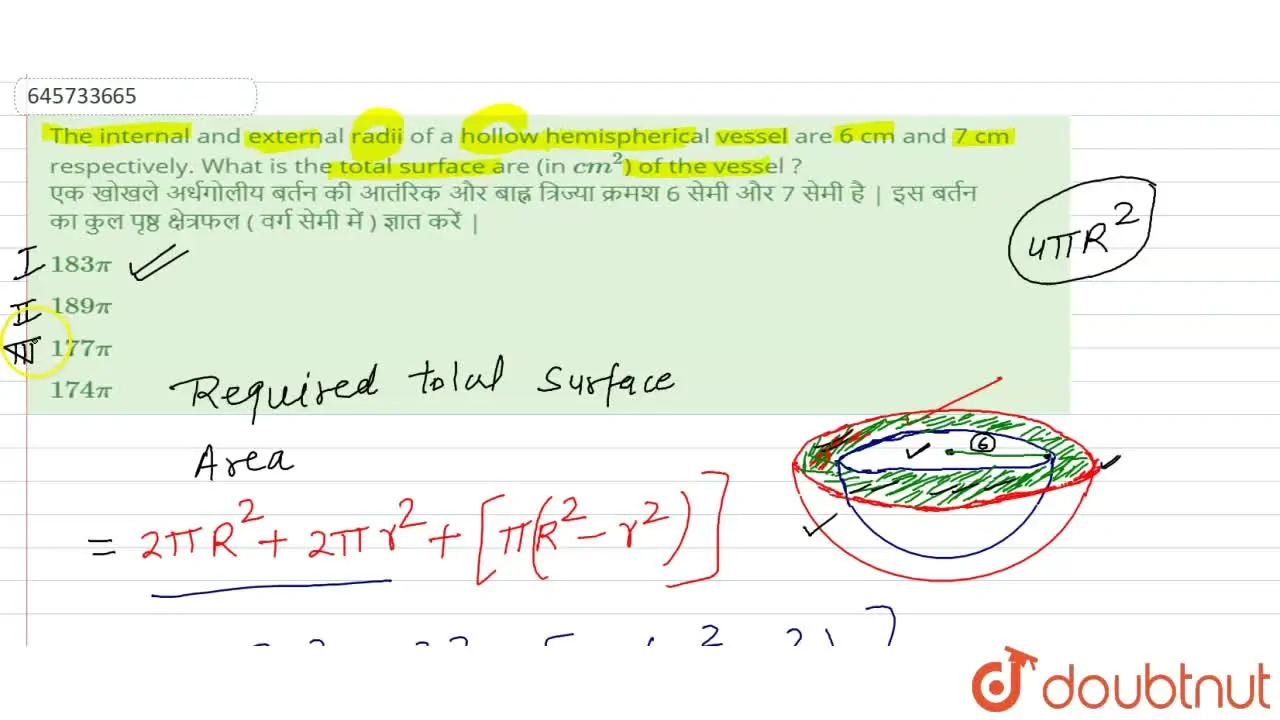 645733665
The internal and external radii of a hollow hemispherical vessel are 6 cm and 7 cm
respectively. What is the total surface are (in cm²) of the vessel ?
एक खोखले अर्धगोलीय बर्तन की आतंरिक और बाह्व त्रिज्या क्रमश 6 सेमी और 7 सेमी है | इस बर्तन
का कुल पृष्ठ क्षेत्रफल ( वर्ग सेमी में ) ज्ञात करें |
4πR²
I 183π
II 189π
III 177π
174π
Required total surface
Area
6
= 2πR² + 2πr² + [π(R² - r²)]
doubtnut